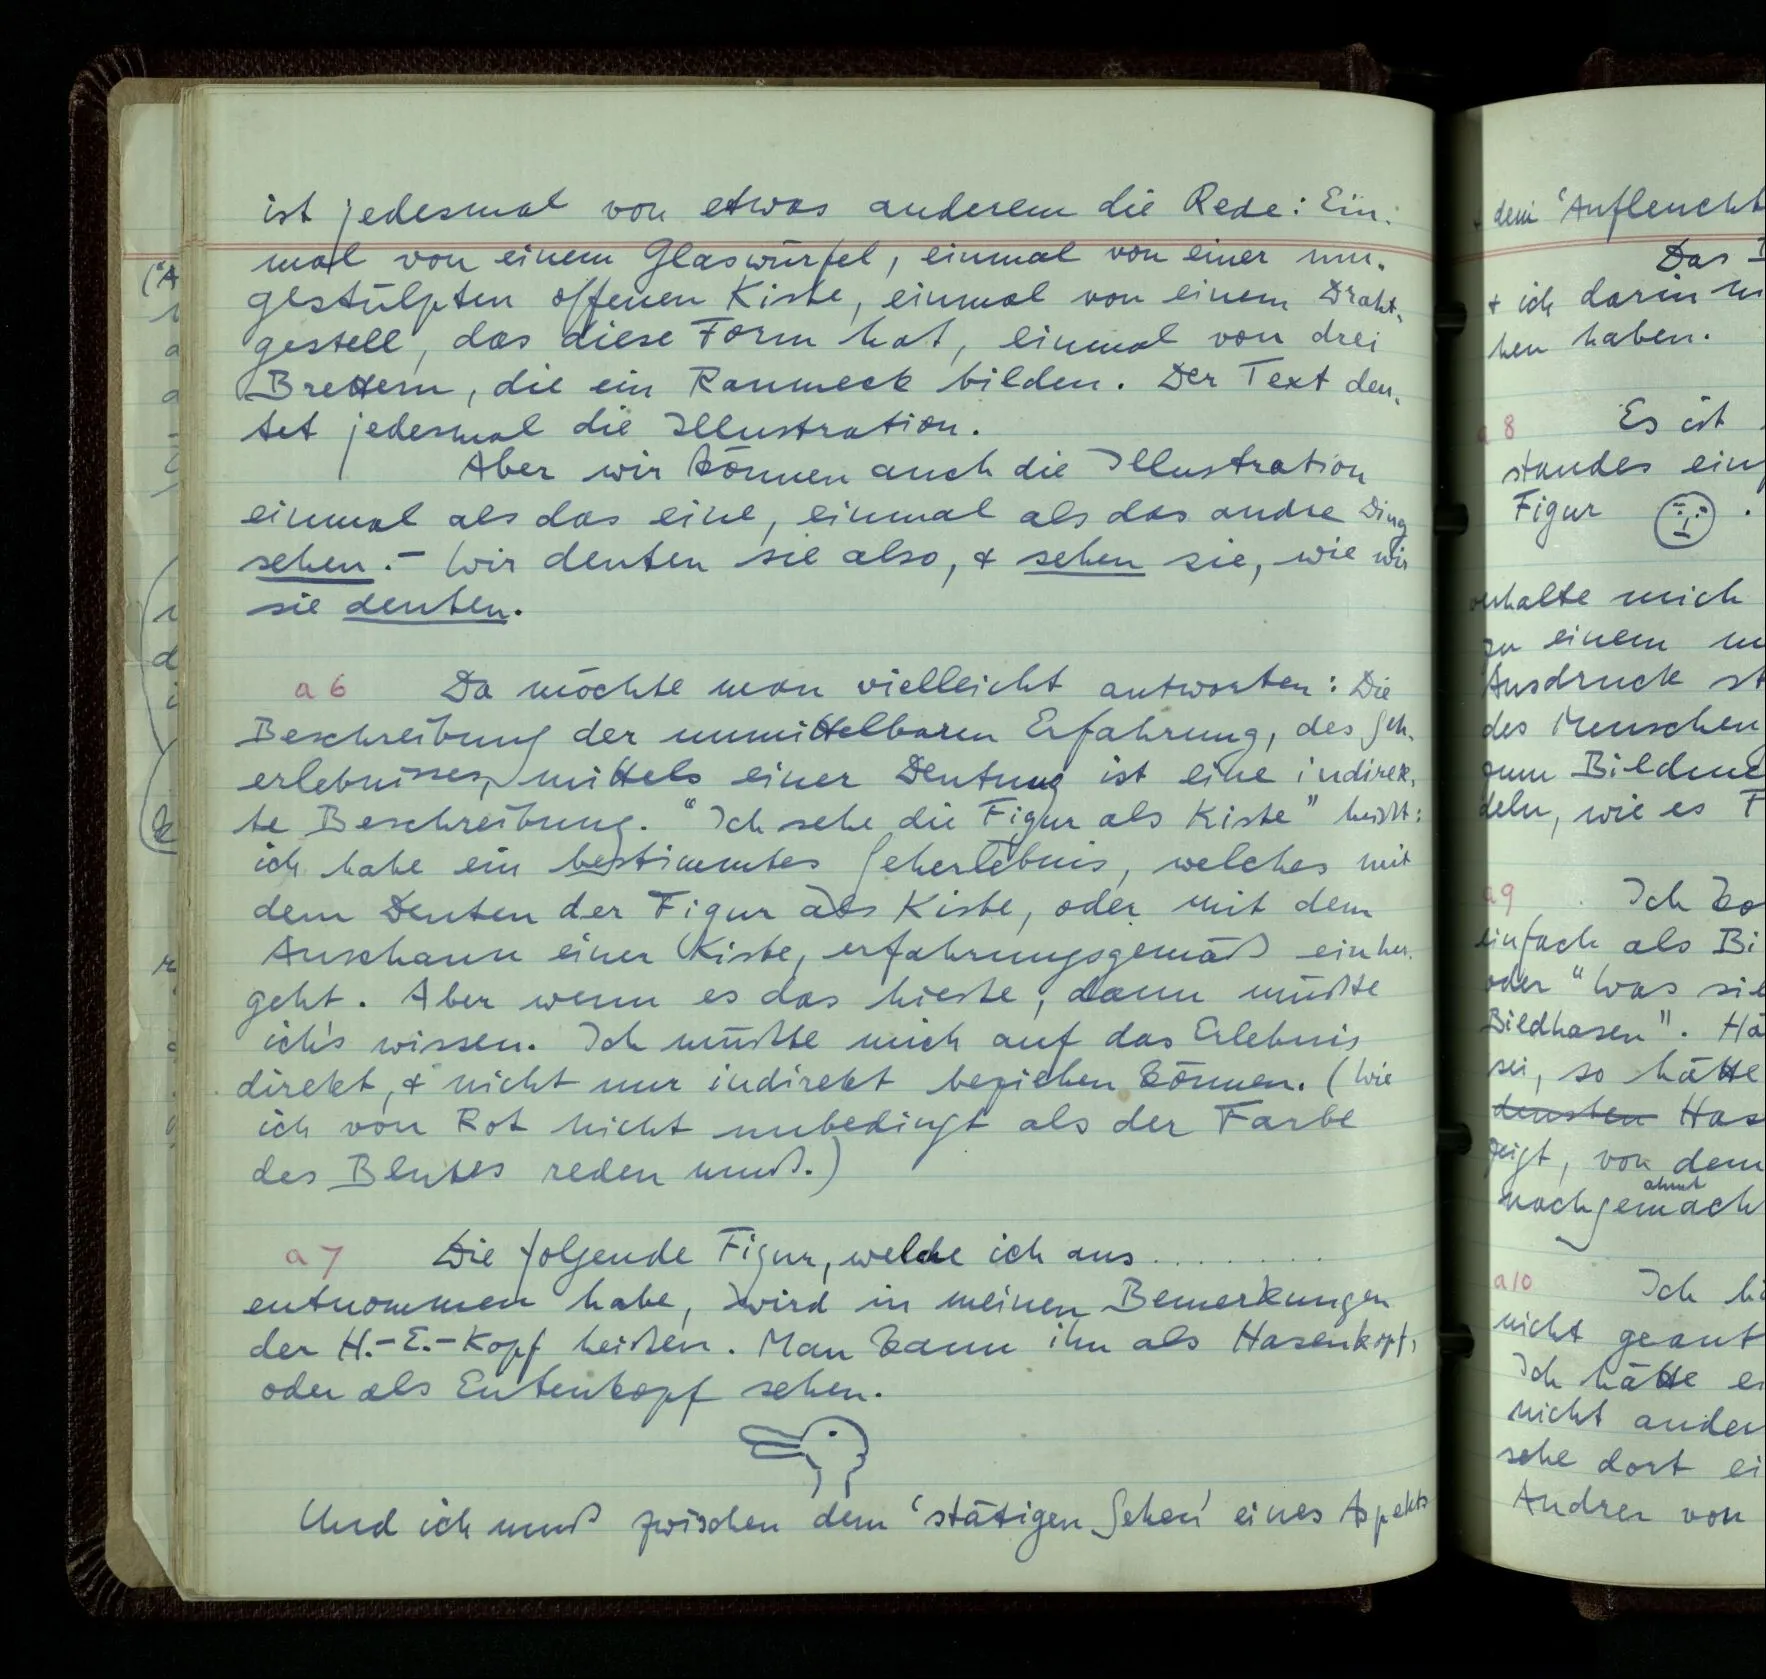 ist jedesmal von etwas anderem die Rede: Ein-
mal von einem Glaswürfel, einmal von einer um-
gestülpten offenen Kiste, einmal von einem Draht-
gestell, das diese Form hat, einmal von drei
Brettern, die ein Raumeck bilden. Der Text deu-
tet jedesmal die Illustration.
Aber wir können auch die Illustration
einmal als das eine, einmal als das andre Ding
sehen. – Wir deuten sie also, & sehen sie, wie wir
sie deuten.
a 6 Da möchte man vielleicht antworten: Die
Beschreibung der unmittelbaren Erfahrung, des Seh-
erlebnisses, mittels einer Deutung ist eine indirek-
te Beschreibung. "Ich sehe die Figur als Kiste" heißt:
ich habe ein bestimmtes Seherlebnis, welches mit
dem Deuten der Figur als Kiste, oder mit dem
Anschaun einer Kiste, erfahrungsgemäß einher-
geht. Aber wenn es das hieße, dann müßte
ich's wissen. Ich müßte mich auf das Erlebnis
direkt, & nicht nur indirekt beziehen können. (Wie
ich von Rot nicht unbedingt als der Farbe
des Blutes reden muß.)
a 7 Die folgende Figur, welche ich aus . . . . . . . .
entnommen habe, wird in meinen Bemerkungen
der H.-E.-Kopf heißen. Man kann ihn als Hasenkopf,
oder als Entenkopf sehen.
Und ich muß zwischen dem 'stätigen Sehen' eines Aspekts
dem 'Aufleucht
Das
& ich darin
hen haben.
a 8 Es ist
standes ein
Figur .
verhalte mich
zu einem
Ausdruck st
des Menschen
zum Bilde
deln, wie es F
a9 Ich ko
einfach als Bi
oder "Was sie
Bildhasen". Hä
sei, so hätte
Has
zeigt, von dem
ahmt
nachgemach
a10 Ich
nicht geant
Ich hätte ei
nicht ander
sehe dort ei
Andrer von